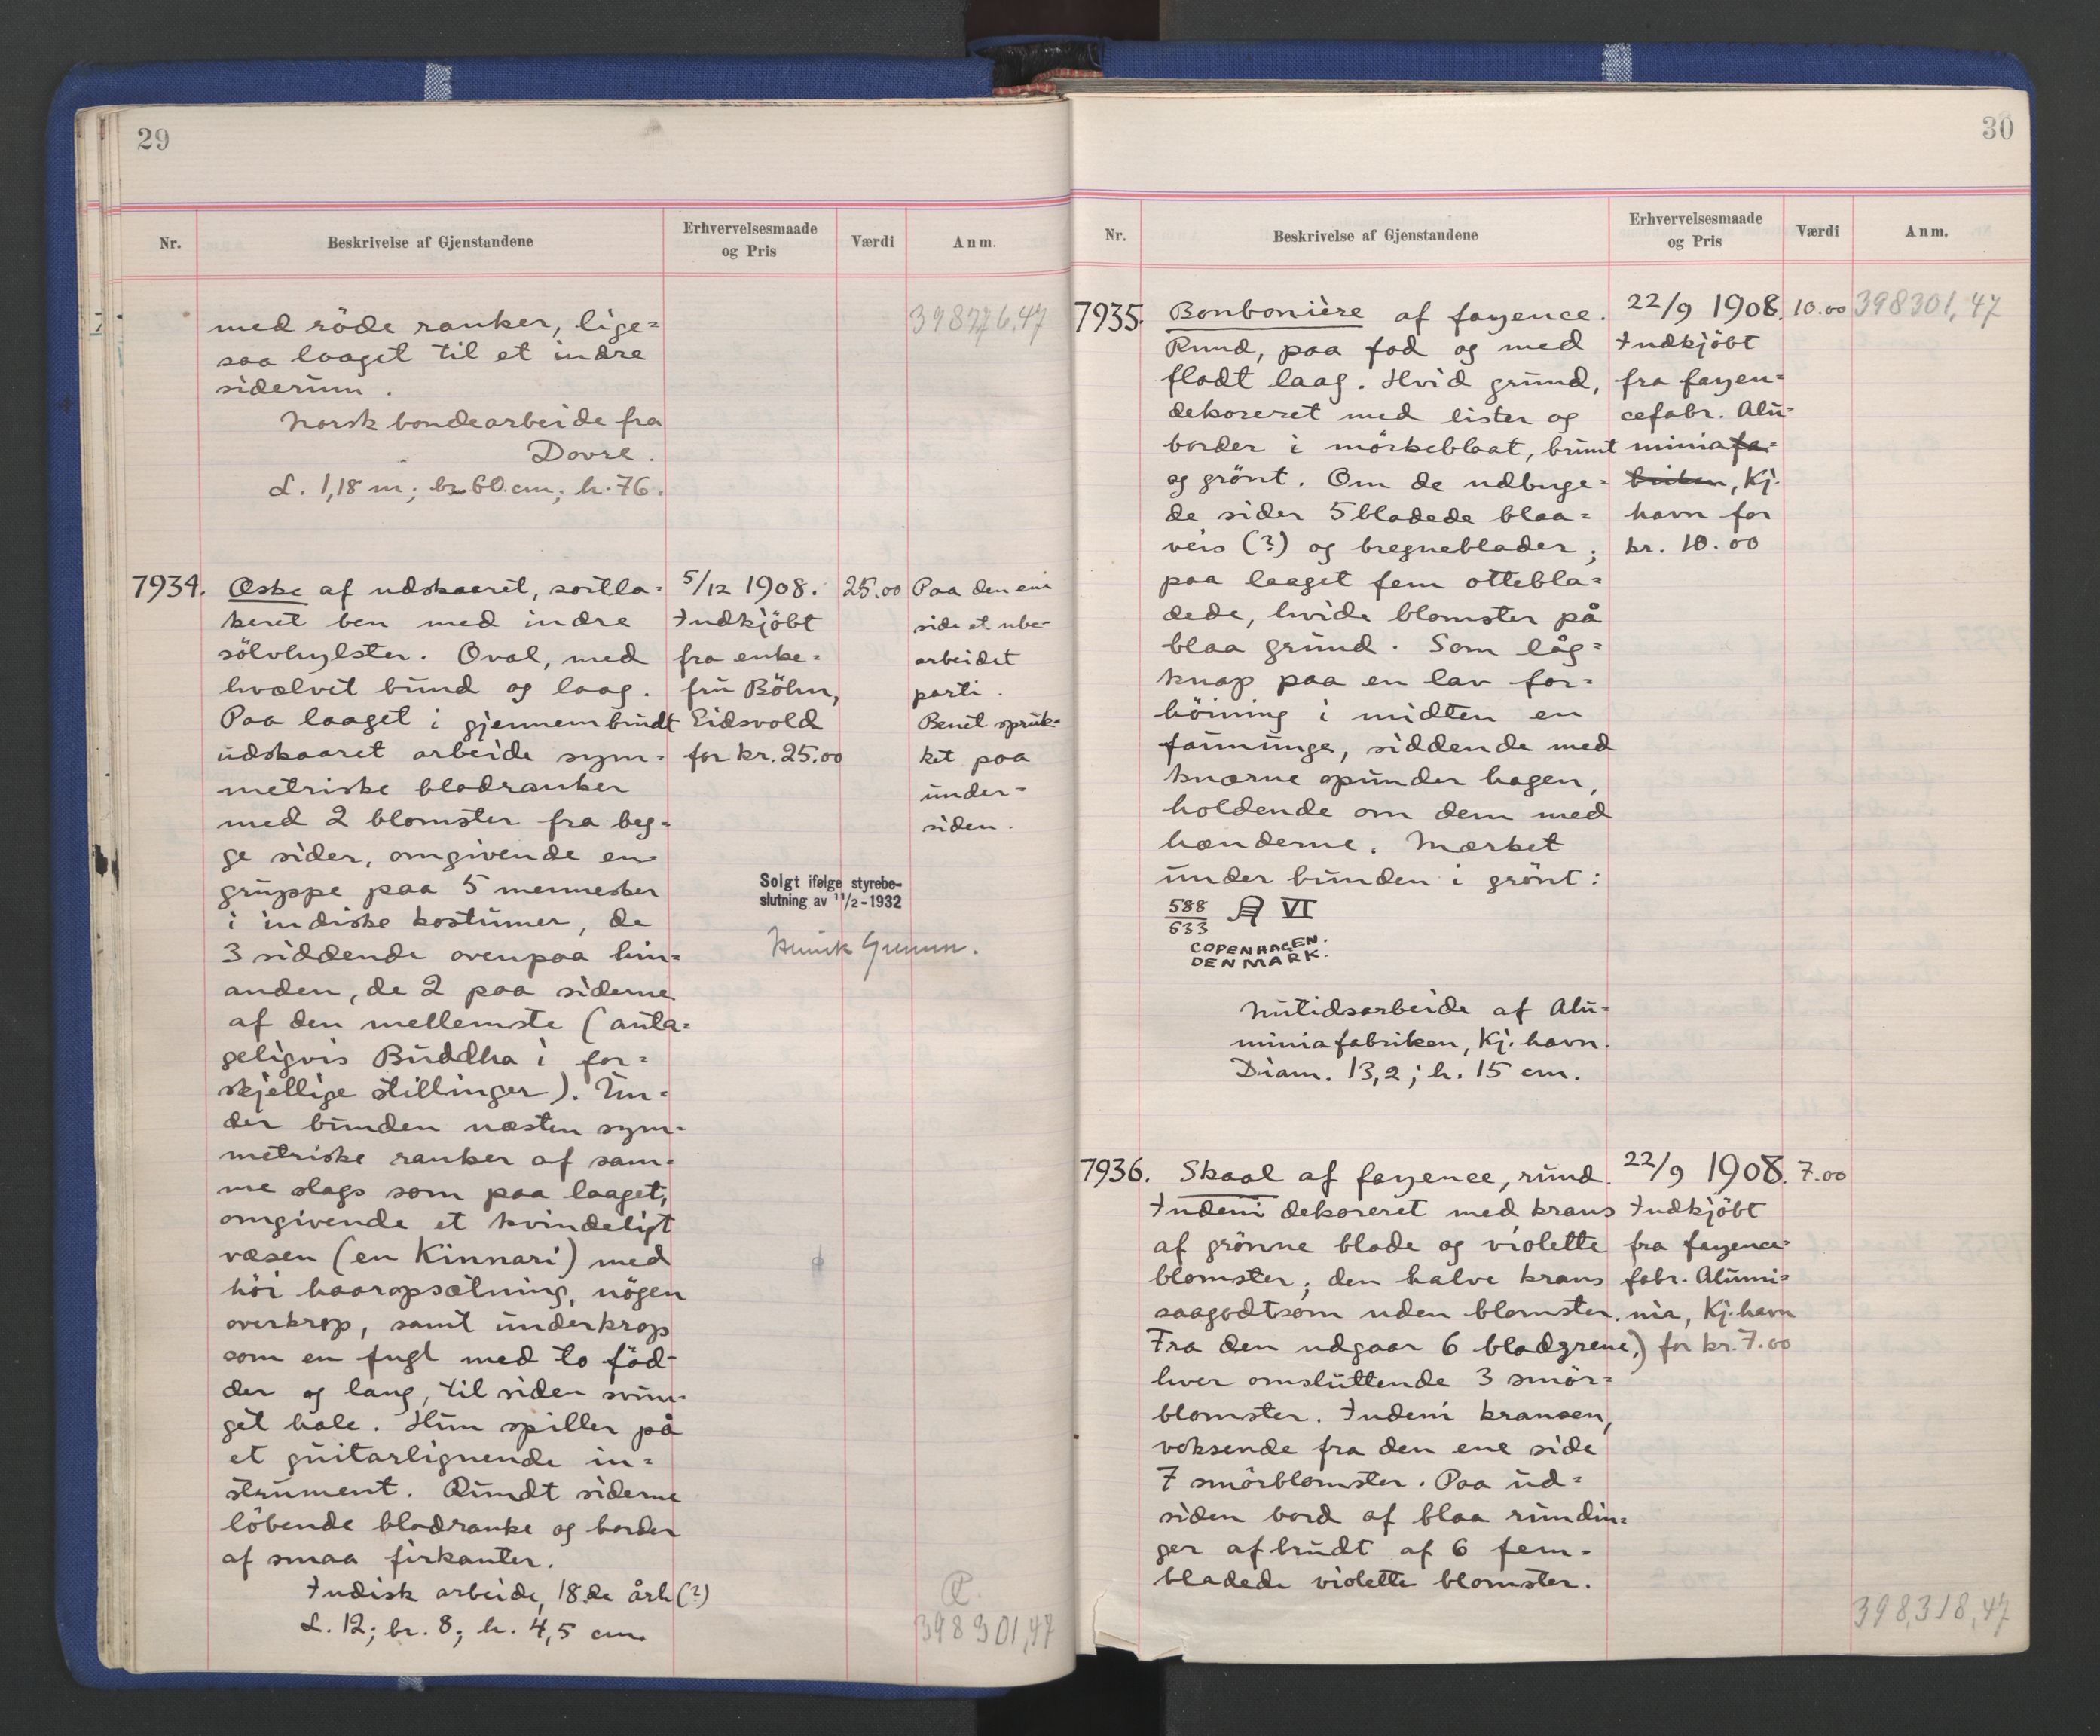 29
Nr.
Beskrivelse af Gjenstandene
Erhvervelsesmaade
og Pris
Værdi
Anm.
med röde ranker, lige=
saa laaget til et indre
siderum.
Norsk bondearbeide fra
Dovre.
L. 1,18 m; br. 60 cm; h. 76.
398276,47
7934.
Œske af udskaaret, sortla=
keret ben med indre
sölvhylster. Oval, med
hvælvet bund og laag.
Paa laaget i gjennembrudt
udskaaret arbeide sym=
metriske bladranker
med 2 blomster fra beg=
ge sider, omgivende en
gruppe paa 5 mennesker
i indiske kostumer, de
3 siddende ovenpaa hin=
anden, de 2 paa siderne
af den mellemste (anta=
geligvis Buddha i for=
skjellige stillinger). Un=
der bunden næsten sym=
metriske ranker af sam=
me slags som paa laaget,
omgivende et kvindeligt
væsen (en Kinnari) med
höi haaropsætning, nögen
overkrop, samt underkrop
som en fugl med to föd=
der og lang, til siden svun=
get hale. Hun spiller på
et guitarlignende in=
strument. Rundt siderne
löbende bladranke og border
af smaa firkanter.
Indisk arbeide, 18.de årh (?)
L. 12; br. 8; h. 4,5 cm.
5/12 1908.
Indkjöbt
fra enke=
fru Böhn,
Eidsvold
for kr. 25.00
25.00
Paa den ene
side et ube-
arbeidet
parti.
Benet spruk=
ket paa
under=
siden.
Solgt ifølge styrebe-
slutning av 11/2-1932
398301,47
30
Nr.
Beskrivelse af Gjenstandene
Erhvervelsesmaade
og Pris
Værdi
Anm.
7935.
Bonbonière af fayence.
Rund, paa fod og med
fladt laag. Hvid grund,
dekoreret med lister og
border i mörkeblaat, brunt
og grönt. Om de udbuge=
de sider 5 bladede blaa=
veis (?) og bregneblader;
paa laaget fem ottebla=
dede, hvide blomster på
blaa grund. Som låg=
knap paa en lav for=
höining i midten en
faununge, siddende med
knærne opunder hagen,
holdende om dem med
hænderne. Mærket
under bunden i grönt:
588
633
VI
COPENHAGEN.
DENMARK.
Nutidsarbeide af Alu=
miniafabriken, Kj.havn.
Diam. 13,2; h. 15 cm.
22/9 1908.
Indkjöbt
fra fayen=
cefabr. Alu=
minia fa=
briken, Kj.
havn for
kr. 10.00
10.00
398301,47
7936.
Skaal af fayence, rund.
Indeni dekoreret med krans
af grönne blade og violette
blomster; den halve krans
saagodtsom uden blomster.
Fra den udgaar 6 bladgrene,
hver omsluttende 3 smör=
blomster. Indeni kransen,
voksende fra den ene side
7 smörblomster. Paa ud=
siden bord af blaa rundin=
ger afbrudt af 6 fem=
bladede violette blomster.
22/9 1908.
Indkjöbt
fra fayence=
fabr. Alumi=
nia, Kj.havn
for kr. 7.00
7.00
398,318,47